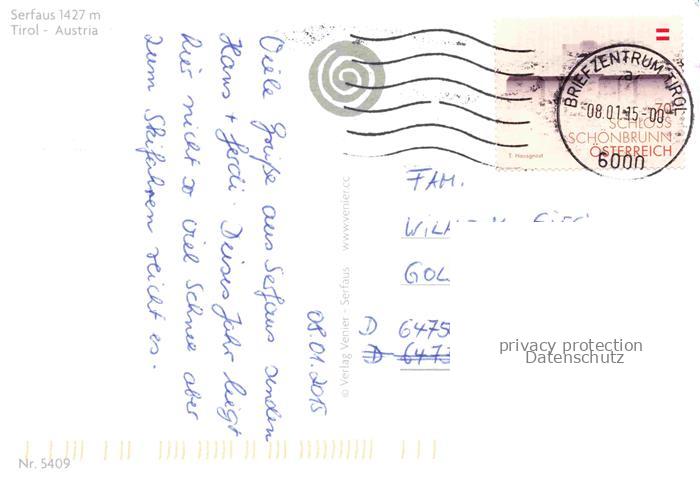 Serfaus 1427 m
Tirol - Austria
Viele Grüße aus Serfaus senden
Hans + Gerdi. Dieses Jahr liegt
hier nicht so viel Schnee aber
zum Skifahren reicht es.
08.01.2015
© Verlag Venier - Serfaus www.venier.cc
BRIEFZENTRUM TIROL
a
08.01.15-00
6000
70
SCHLOSS
SCHÖNBRUNN
ÖSTERREICH
FAM.
GOL
D 6475
D 6473
privacy protection
Datenschutz
Nr. 5409